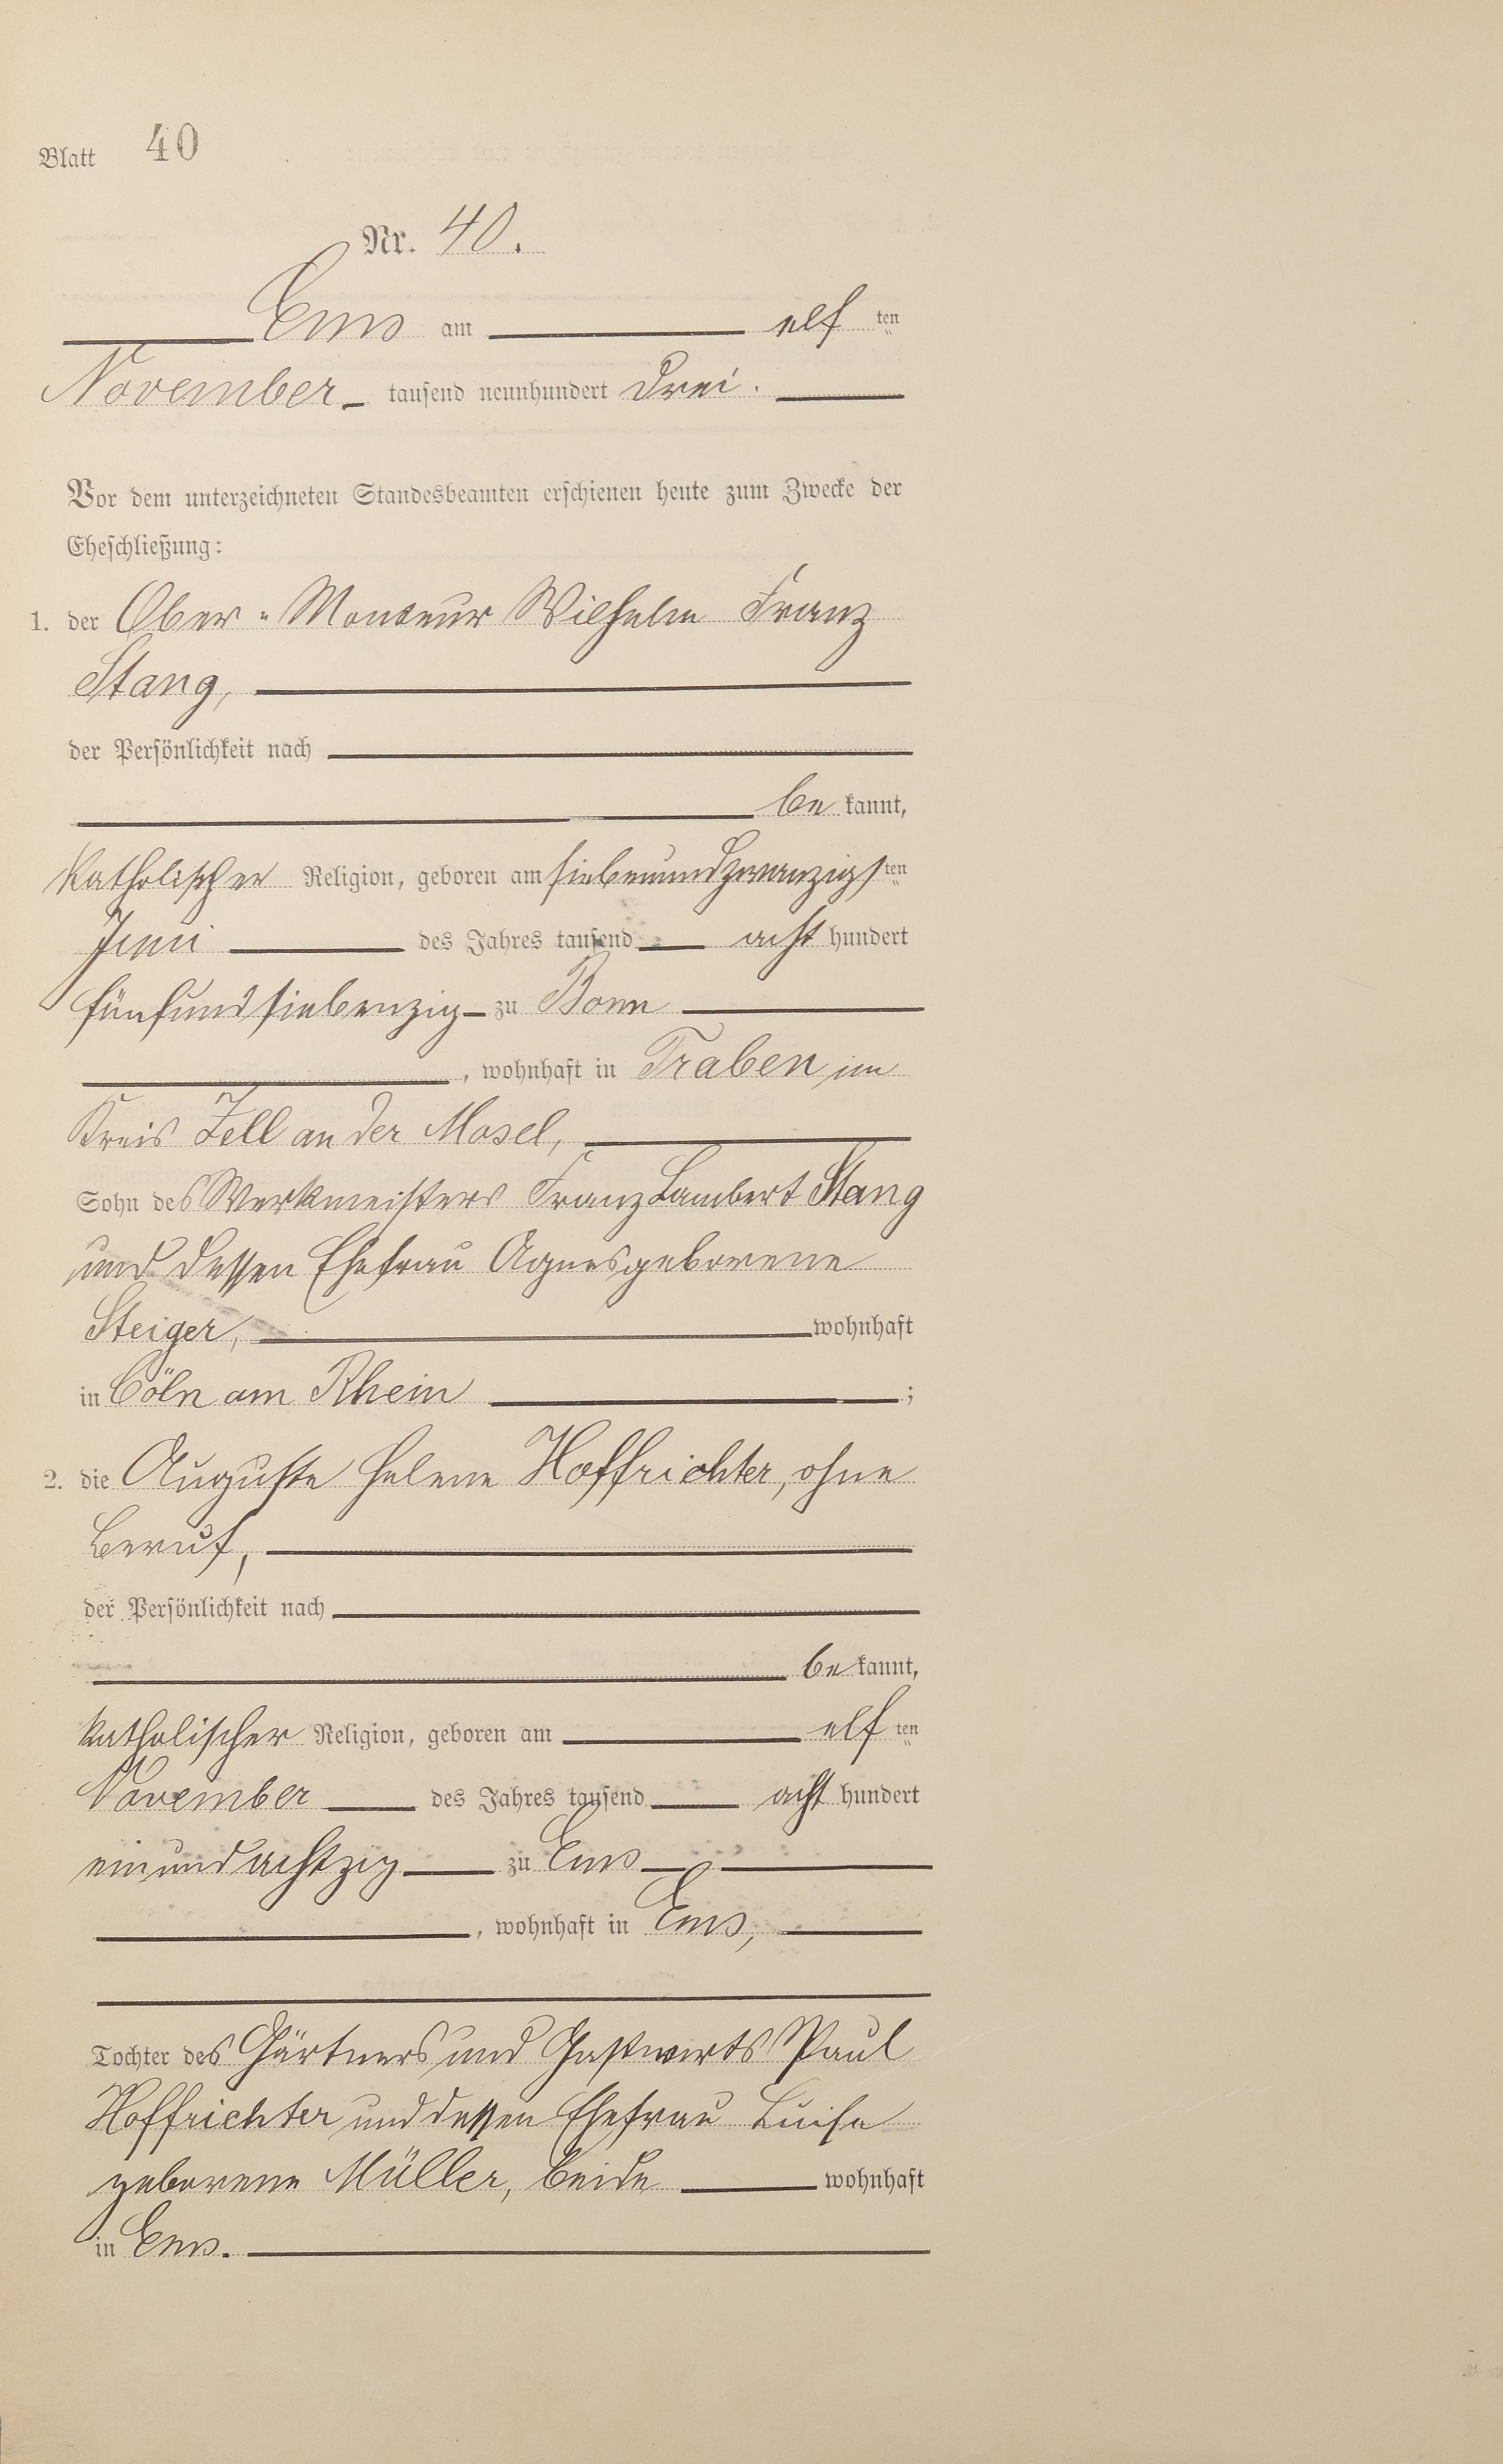 Blatt 40
Nr. 40.
Ems am elf ten
November tausend neunhundert drei.
Vor dem unterzeichneten Standesbeamten erschienen heute zum Zwecke der
Eheschließung:
1. der Ober-Monteur Wilhelm Franz
Stang,
der Persönlichkeit nach
be kannt,
katholischer Religion, geboren am siebenundzwanzigsten
Juni des Jahres tausend acht hundert
fünfundsiebenzig zu Bonn
, wohnhaft in Traben im
Kreis Zell an der Mosel,
Sohn des Werkmeisters Franz Lambert Stang
und dessen Ehefrau Agnes geborene
Steiger, wohnhaft
in Cöln am Rhein ;
2. die Auguste Helene Hoffrichter, ohne
Beruf,
der Persönlichkeit nach
be kannt,
katholischer Religion, geboren am elf ten
November des Jahres tausend acht hundert
einundachtzig zu Ems
, wohnhaft in Ems,
Tochter des Gärtners und Gastwirts Paul
Hoffrichter und dessen Ehefrau Luise
geborene Müller, beide wohnhaft
in Ems.